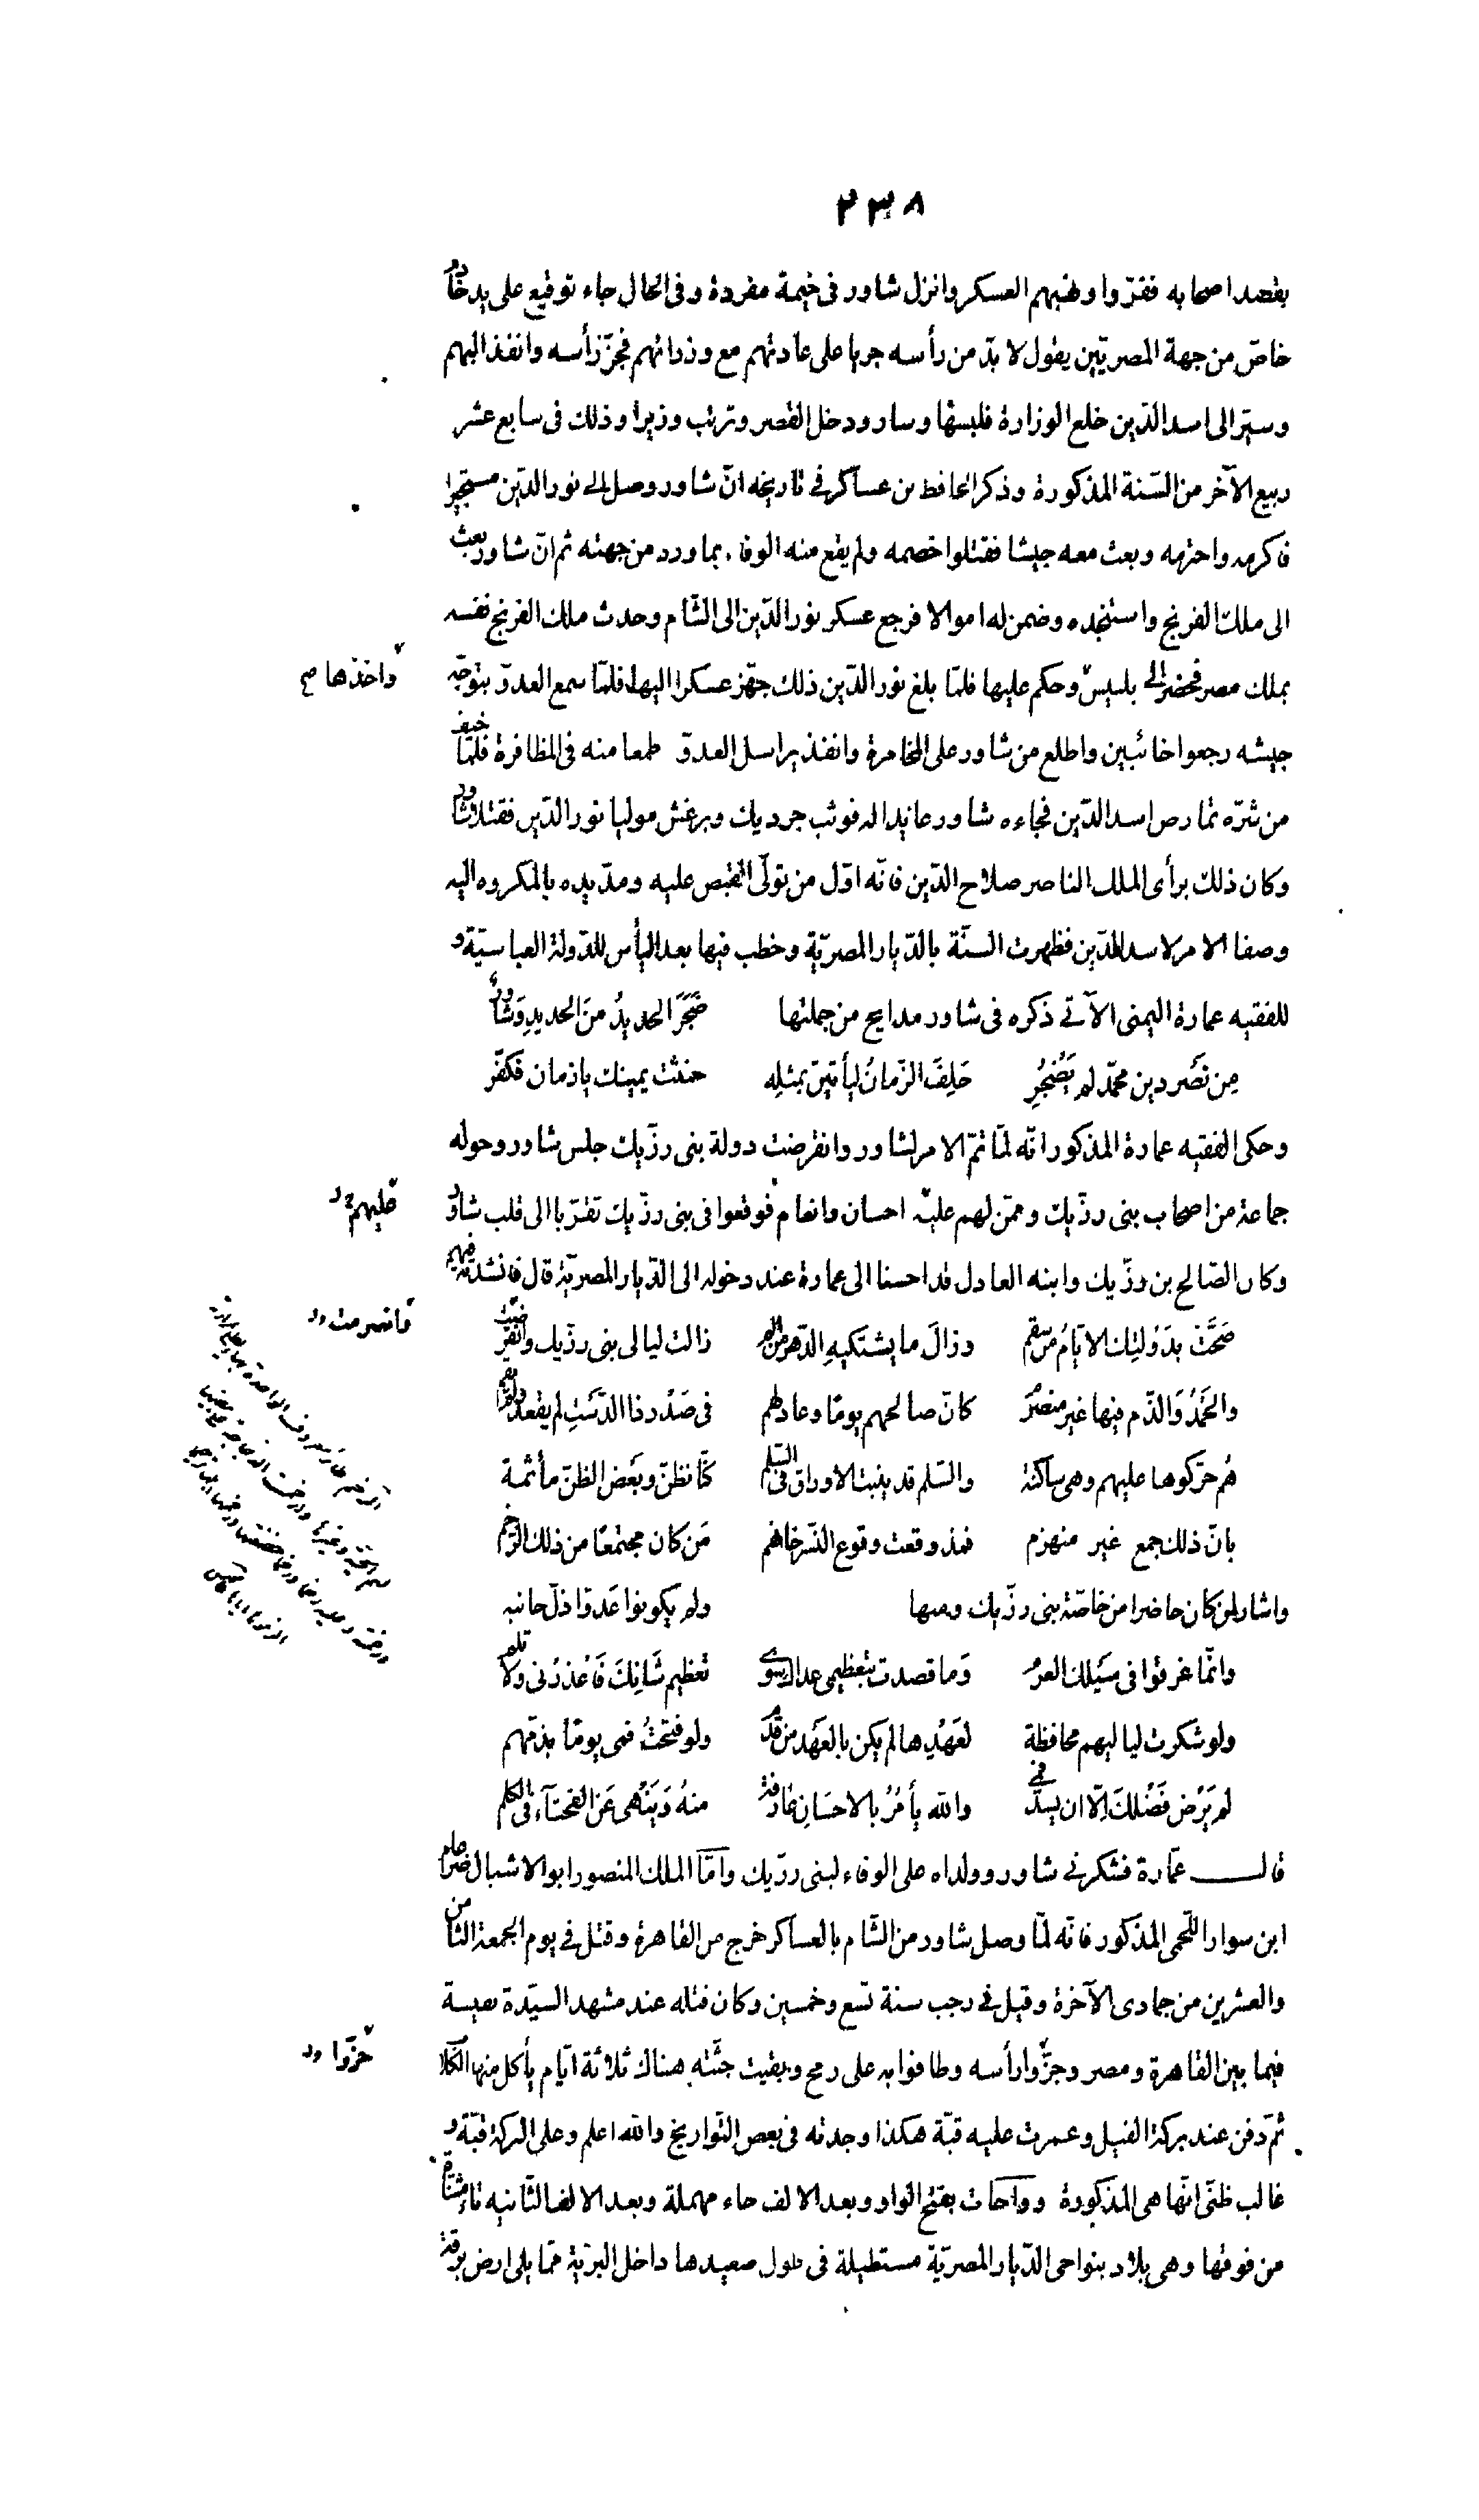 ٢٣٨
بقصد اصحابه ففرّوا ونهبهم العسكر وانزل شاور فى خيمة مفردة وفى الحال جاء توقيع على يد خادم
خاصّ من جهة المصريّين يقول لا بدّ من رأسه جريا على عادتهم مع وزرائهم فجزّ رأسه وانفذ اليهم
وسيّر الى اسد الدّين خلع الوزارة فلبسها وسار ودخل القصر وترتب وزيرا وذلك فى سابع عشر
ربيع الآخر من السّنة المذكورة وذكر الحافظ بن عساكر فى تاريخه انّ شاور وصل الى نور الدّين مستجيرا
فاكرمه واحترمه وبعث معه جيشا فقتلوا خصمه ولم يقع منه الوفاء بما ورد من جهته ثم انّ شاور بعث
الى ملك الفرنج واستنجده وضمن له اموالا فرجع عسكر نور الدّين الى الشّام وحدث ملك الفرنج نفسه
بملك مصر فحضر الى بلبيس وحكم عليها فلمّا بلغ نور الدّين ذلك جهّز عسكرا اليها فلمّا سمع العدوّ بتوجّه
واخذها صح
جيشه رجعوا خائبين واطلع من شاور على المخامرة وانفذ يراسل العدوّ طمعا منه فى المظافرة فلمّا خيف
من شرّه تمارض اسد الدّين فجاءه شاور عائدا له فوثب جرديك وبرغش موليا نور الدّين فقتلا شاور
وكان ذلك برأى الملك الناصر صلاح الدّين فانّه اوّل من تولّى القبض عليه ومدّ يده بالمكروه اليه
وصفا الامر لاسد الدّين فظهرت السنّة بالدّيار المصريّة وخطب فيها بعد اليأس للدّولة العباسيّة و
للفقيه عمارة اليمنى الآتى ذكره فى شاور مدايح من جملتها ضَجَرَ الحديدُ منَ الحديدِ وَشاورٌ
مِن نَصْر دين محمّد لم يَضْجُرِ حَلِفَ الزّمانُ ليأتينّ بمثلِه حنثت يمينك يا زمان فكفّر
وحكى الفقيه عمارة المذكور انّه لمّا تمّ الامر لشاور وانقرضت دولة بنى رزّيك جلس شاور وحوله
جماعة من اصحاب بنى رزّيك وممّن لهم عليه احسان وانعام فوقعوا فى بنى رزّيك تقرّبا الى قلب شاور
عليهم
وكان الصّالح بن رزّيك وابنه العادل قد احسنا الى عمارة عند دخوله الى الدّيار المصريّة قال فانشدته
صَحَّتْ بِدَوْلتِكَ الايّامُ من سقم وزالَ ما يشتكيهِ الدّهر من الم زالت ليالى بنى رزّيك وانصرمت
فانصرمت
والحَمْدُ وَالذّم فيها غير منصرم كانّ صالحهم يومًا وعادلهم فى صَدْر ذا الدّسْتِ لم يقعد ولم يقم
هُم حرّكوها عليهم وهى ساكنة والسّلم قد ينبت الاوراق فى السّلم كنّا نظنّ وبَعْض الظنّ مأثمة
بانّ ذلك جمع غير منهزم فمذ وقعت وقوع النّسر خانهم مَن كان مجتمعًا من ذلك الرّخم
واشار لمن كان حاضرا من خاصّة بنى رزّيك ومنها ولم يكونوا عَدوّا ذلّ جانبه
وانّما غرقوا فى سَيْلك العرم وَما قصدت بتعظيمى عداك سوى تعظيم شَانِكَ فَاعْذرْنى ولا تلم
ولو شكرت لياليهم محافظة لعَهْدِها لم يكن بالعَهْد من قدم ولو فتحتُ فمى يومًا بذمّهم
لم يَرْضَ فَضْلكَ اِلّا ان يسدّ فمى والله يأمُرُ بالاحسَانِ عارفة منهُ وَيَنْهى عَن الفحشآء فى الكلم
قال عمّارة فشكرنى شاور وولداه على الوفاء لبنى رزّيك وامّا الملك المنصور ابو الاشبال ضرغام
ابن سوار اللّخمى المذكور فانّه لمّا وصل شاور من الشّام بالعساكر خرج من القاهرة وقتل فى يوم الجمعة الثّامن
والعشرين من جمادى الآخرة وقيل فى رجب سنة تسع وخمسين وكان قتله عند مشهد السيّدة نفيسة
فيما بين القاهرة ومصر وجزّوا رأسه وطافوا به على رمح وبقيت جثّته هناك ثلاثة ايّام يأكل منها الكلاب
حزّوا
ثمّ دفن عند بركة الفيل وعمرت عليه قبّة هكذا وجدته فى بعض التّواريخ والله اعلم وعلى البركة قبّة و
غالب ظنّى انّها هى المذكورة وواحات بفتح الواو وبعد الالف حاء مهملة وبعد الالف الثّانيه تاء مثنّاة
من فوقها وهى بلاد بنواحى الدّيار المصريّة مستطيلة فى طول صعيدها داخل البرّية ممّا يلى ارض برقة